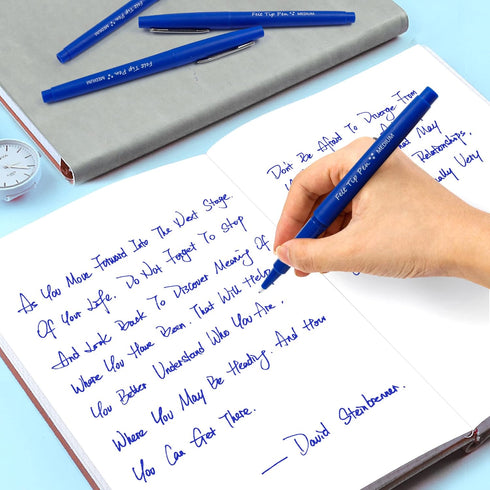 Felt Tip Pen MEDIUM
Felt Tip Pen MEDIUM
Felt Tip Pen MEDIUM
Felt Tip Pen MEDIUM
As You Move Forward Into The Next Stage
Of Your Life. Do Not Forget To Stop
And Look Back To Discover Meaning Of
Where You Have Been. That Will Help
You Better Understand Who You Are.
Where You May Be Heading. And How
You Can Get There.
— David Steinbrenner.
Don't Be Afraid To Diverge From
May
Relationships.
Very